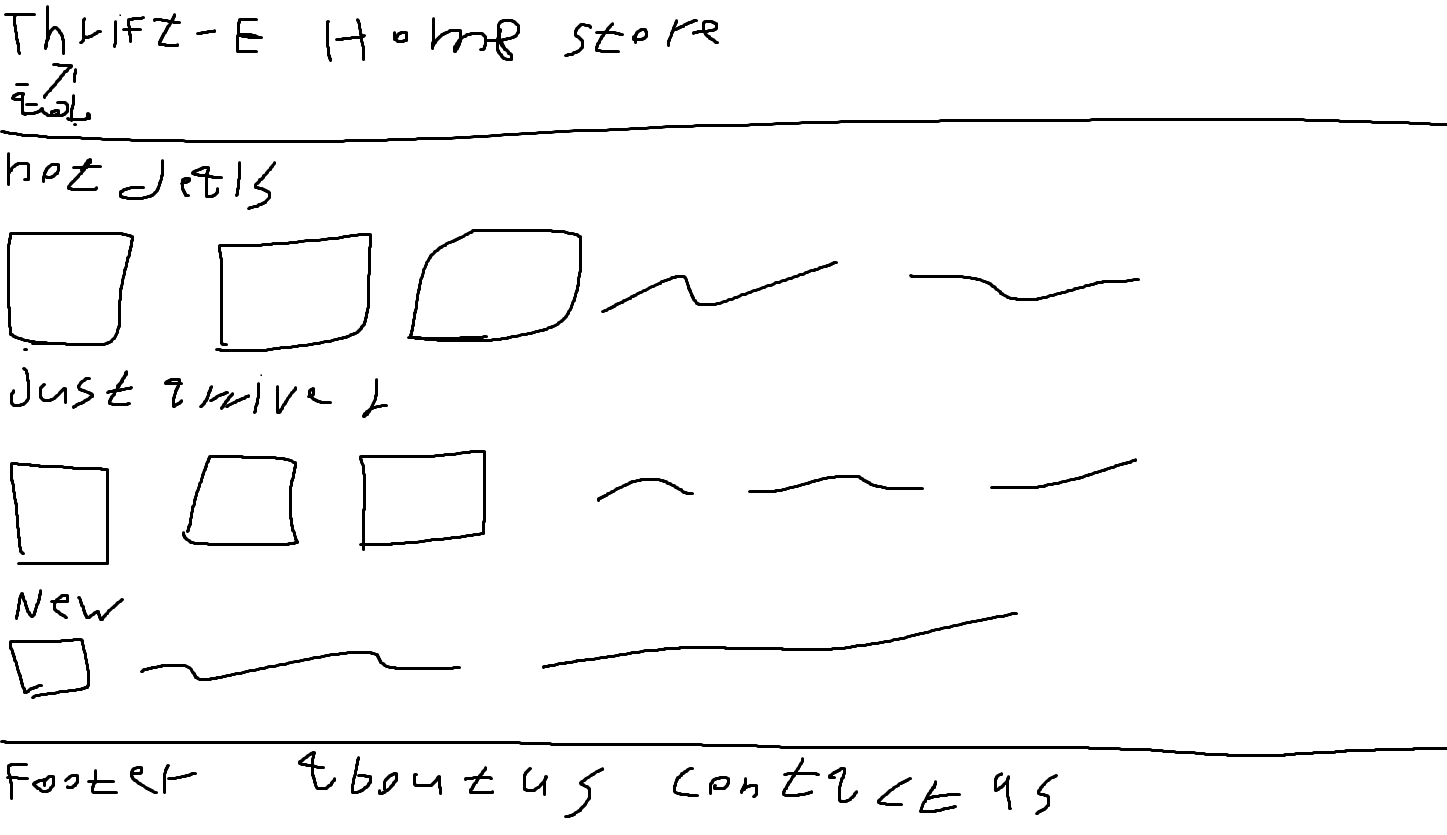 Thrift-E Home store
hot deals
just arrived
New
Footer about us contact us